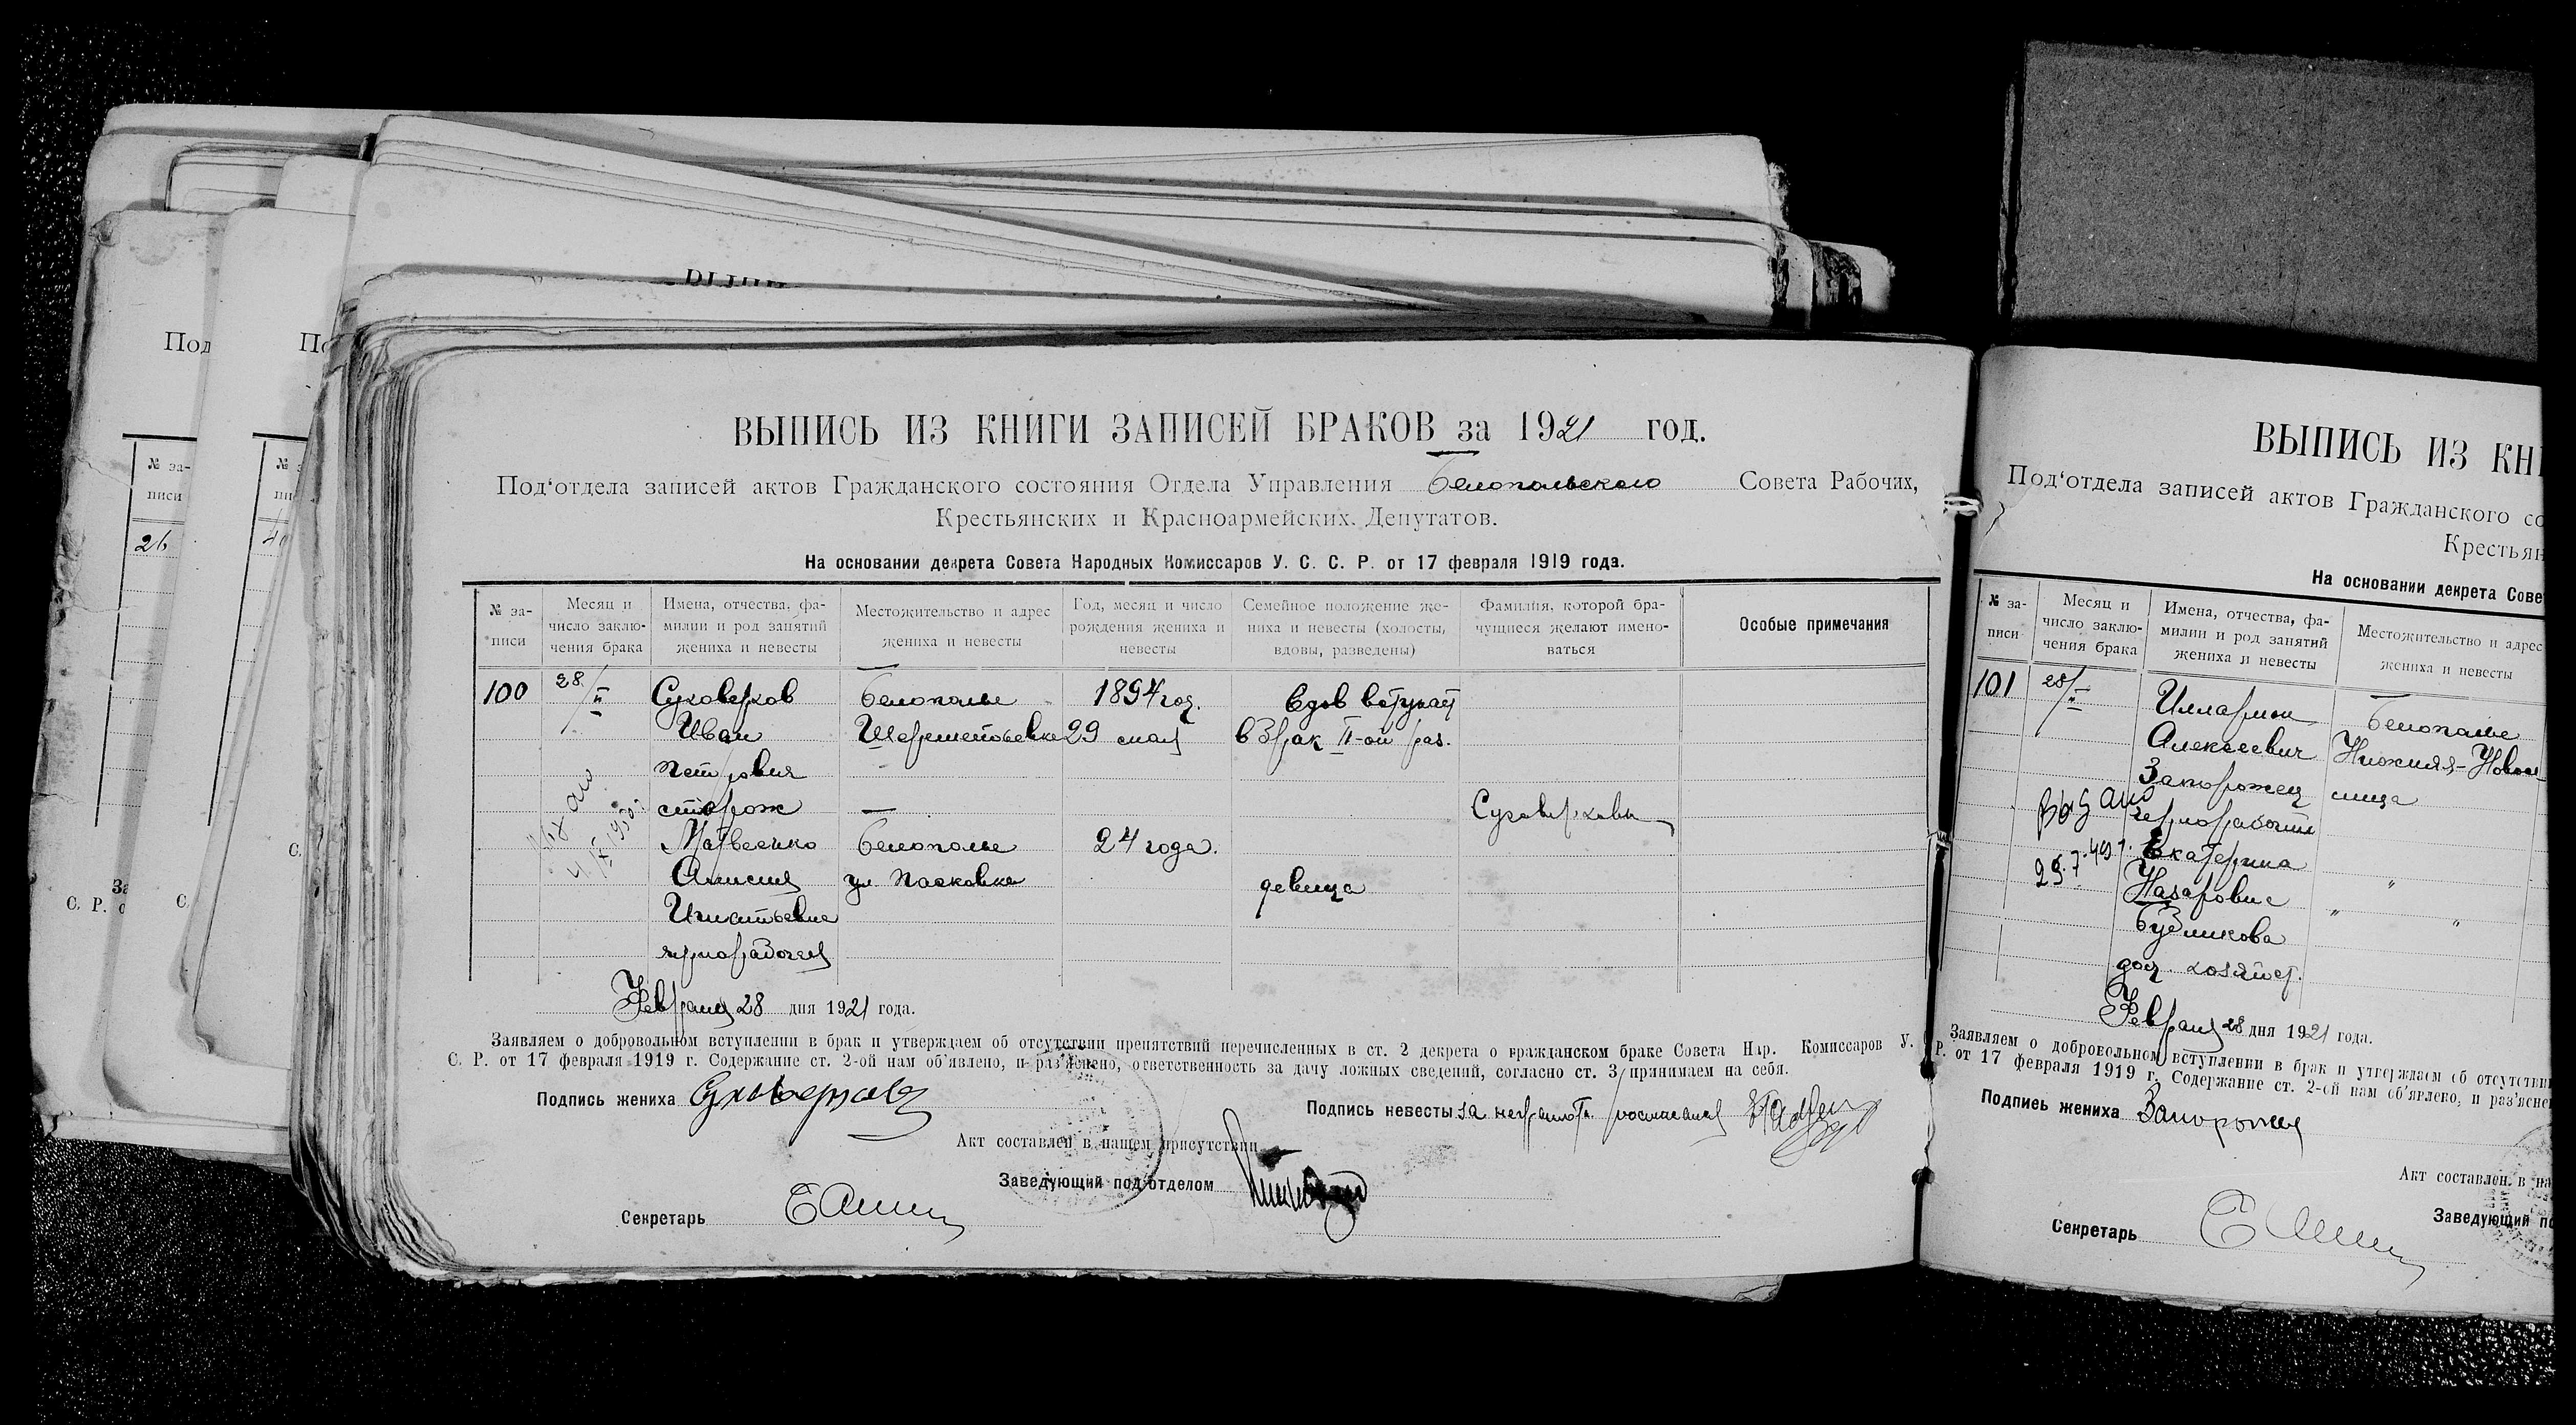 ВЫПИСЬ ИЗ КНИГИ ЗАПИСЕЙ БРАКОВ за 1921 год.
Под'отдела записей актов Гражданского состояния Отдела Управления Белопольского Совета Рабочих,
Крестьянских и Красноармейских Депутатов.
На основании декрета Совета Народных Комиссаров У. С. С. Р. от 17 февраля 1919 года.
№ за-писи
Месяц и число заклю-чения брака
Имена, отчества, фа-милии и род занятий жениха и невесты
Местожительство и адрес жениха и невесты
Год, месяц и число рождения жениха и невесты
Семейное положение же-ниха и невесты (холосты, вдовы, разведены)
Фамилия, которой бра-чущиеся желают имено-ваться
Особые примечания
100 28/II Суховерхов Белополье 1894 год. Вдов вступает
Иван Шереметовевка 29 мая в брак II-ой раз.
Петрович
сторож — Суховерховы
Матвеенко Белополье 24 года.
Анисия ул Пасковка девица
Игнатьевна
чернорабочая
Февраля 28 дня 1921 года.
Заявляем о добровольном вступлении в брак и утверждаем об отсутствии препятствий перечисленных в ст. 2 декрета о гражданском браке Совета Нар. Комиссаров У. С.
С. Р. от 17 февраля 1919 г. Содержание ст. 2-ой нам об'явлено, и раз'яснено, ответственность за дачу ложных сведений, согласно ст. 3 принимаем на себя.
Подпись жениха Суховерхов Подпись невесты за неграмотн росписался
Акт составлен в нашем присутствии
Заведующий под'отделом
Секретарь
ВЫПИСЬ ИЗ КН
Под'отдела записей актов Гражданского со
Крестьян
На основании декрета Сове
№ за-писи
Месяц и число заклю-чения брака
Имена, отчества, фа-милии и род занятий жениха и невесты
Местожительство и адрес жениха и невесты
101 28/II Илларион Белополье
Алексеевич Нижняя-Новос-
Запорожец лица
Выдано чернорабочий
29.7.49 г. Екатерина
Назаровна "
Будникова " "
дом. хозяйст.
Февраля 28 дня 1921 года.
Заявляем о добровольном вступлении в брак и утверждаем об отсутствии
Р. от 17 февраля 1919 г. Содержание ст. 2-ой нам об'явлено, и раз'яснен
Подпись жениха Запорожец
Акт составлен в на
Заведующий по
Секретарь
Под
№ за-
писи
26